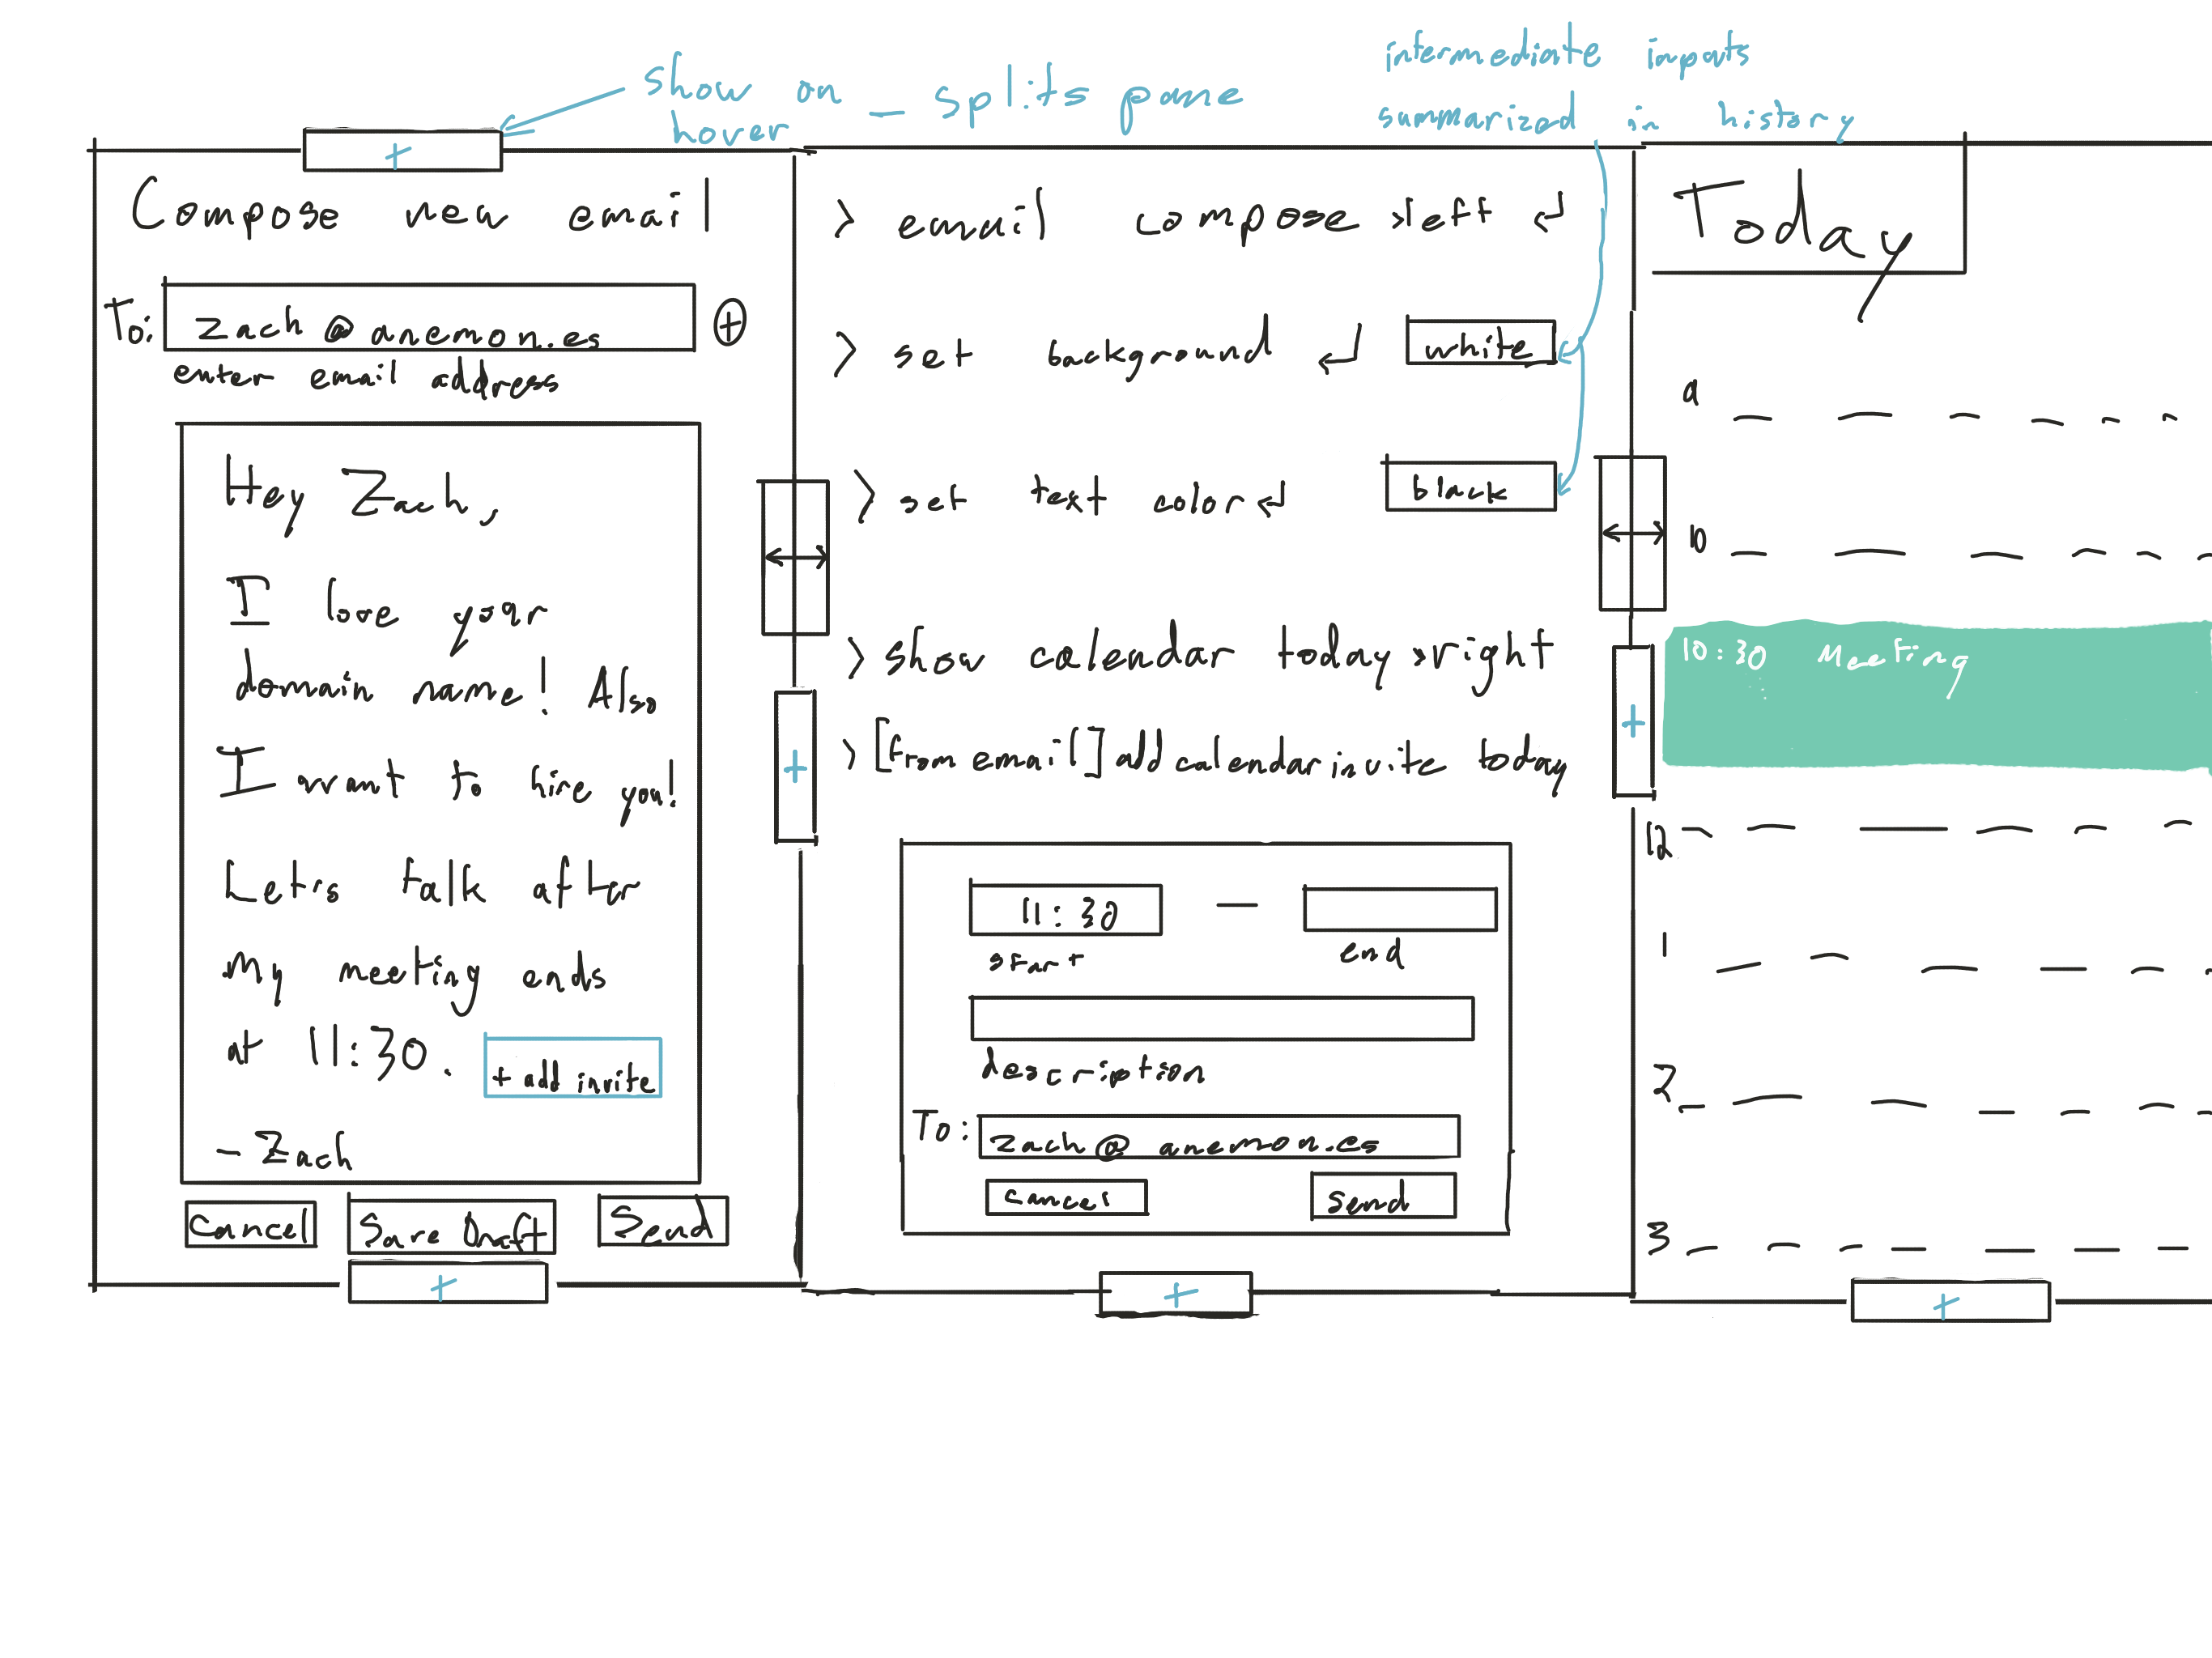 show on – splits pane
hover
intermediate inputs
summarized in history
+
Compose new email
To: zach@anemon.es +
enter email address
Hey Zach,
I love your
domain name! Also
I want to hire you!
Let's talk after
my meeting ends
at 11:30. + add invite
- Zach
Cancel Save Draft Send
+
+
> email compose >left ↵
> set background ↵ white
> set text color ↵ black
> show calendar today >right
> [from email] add calendar invite today
11:30 —
start end
description
To: zach@anemon.es
cancel send
+
+
Today
9
10
10:30 Meeting
12
1
2
3
+